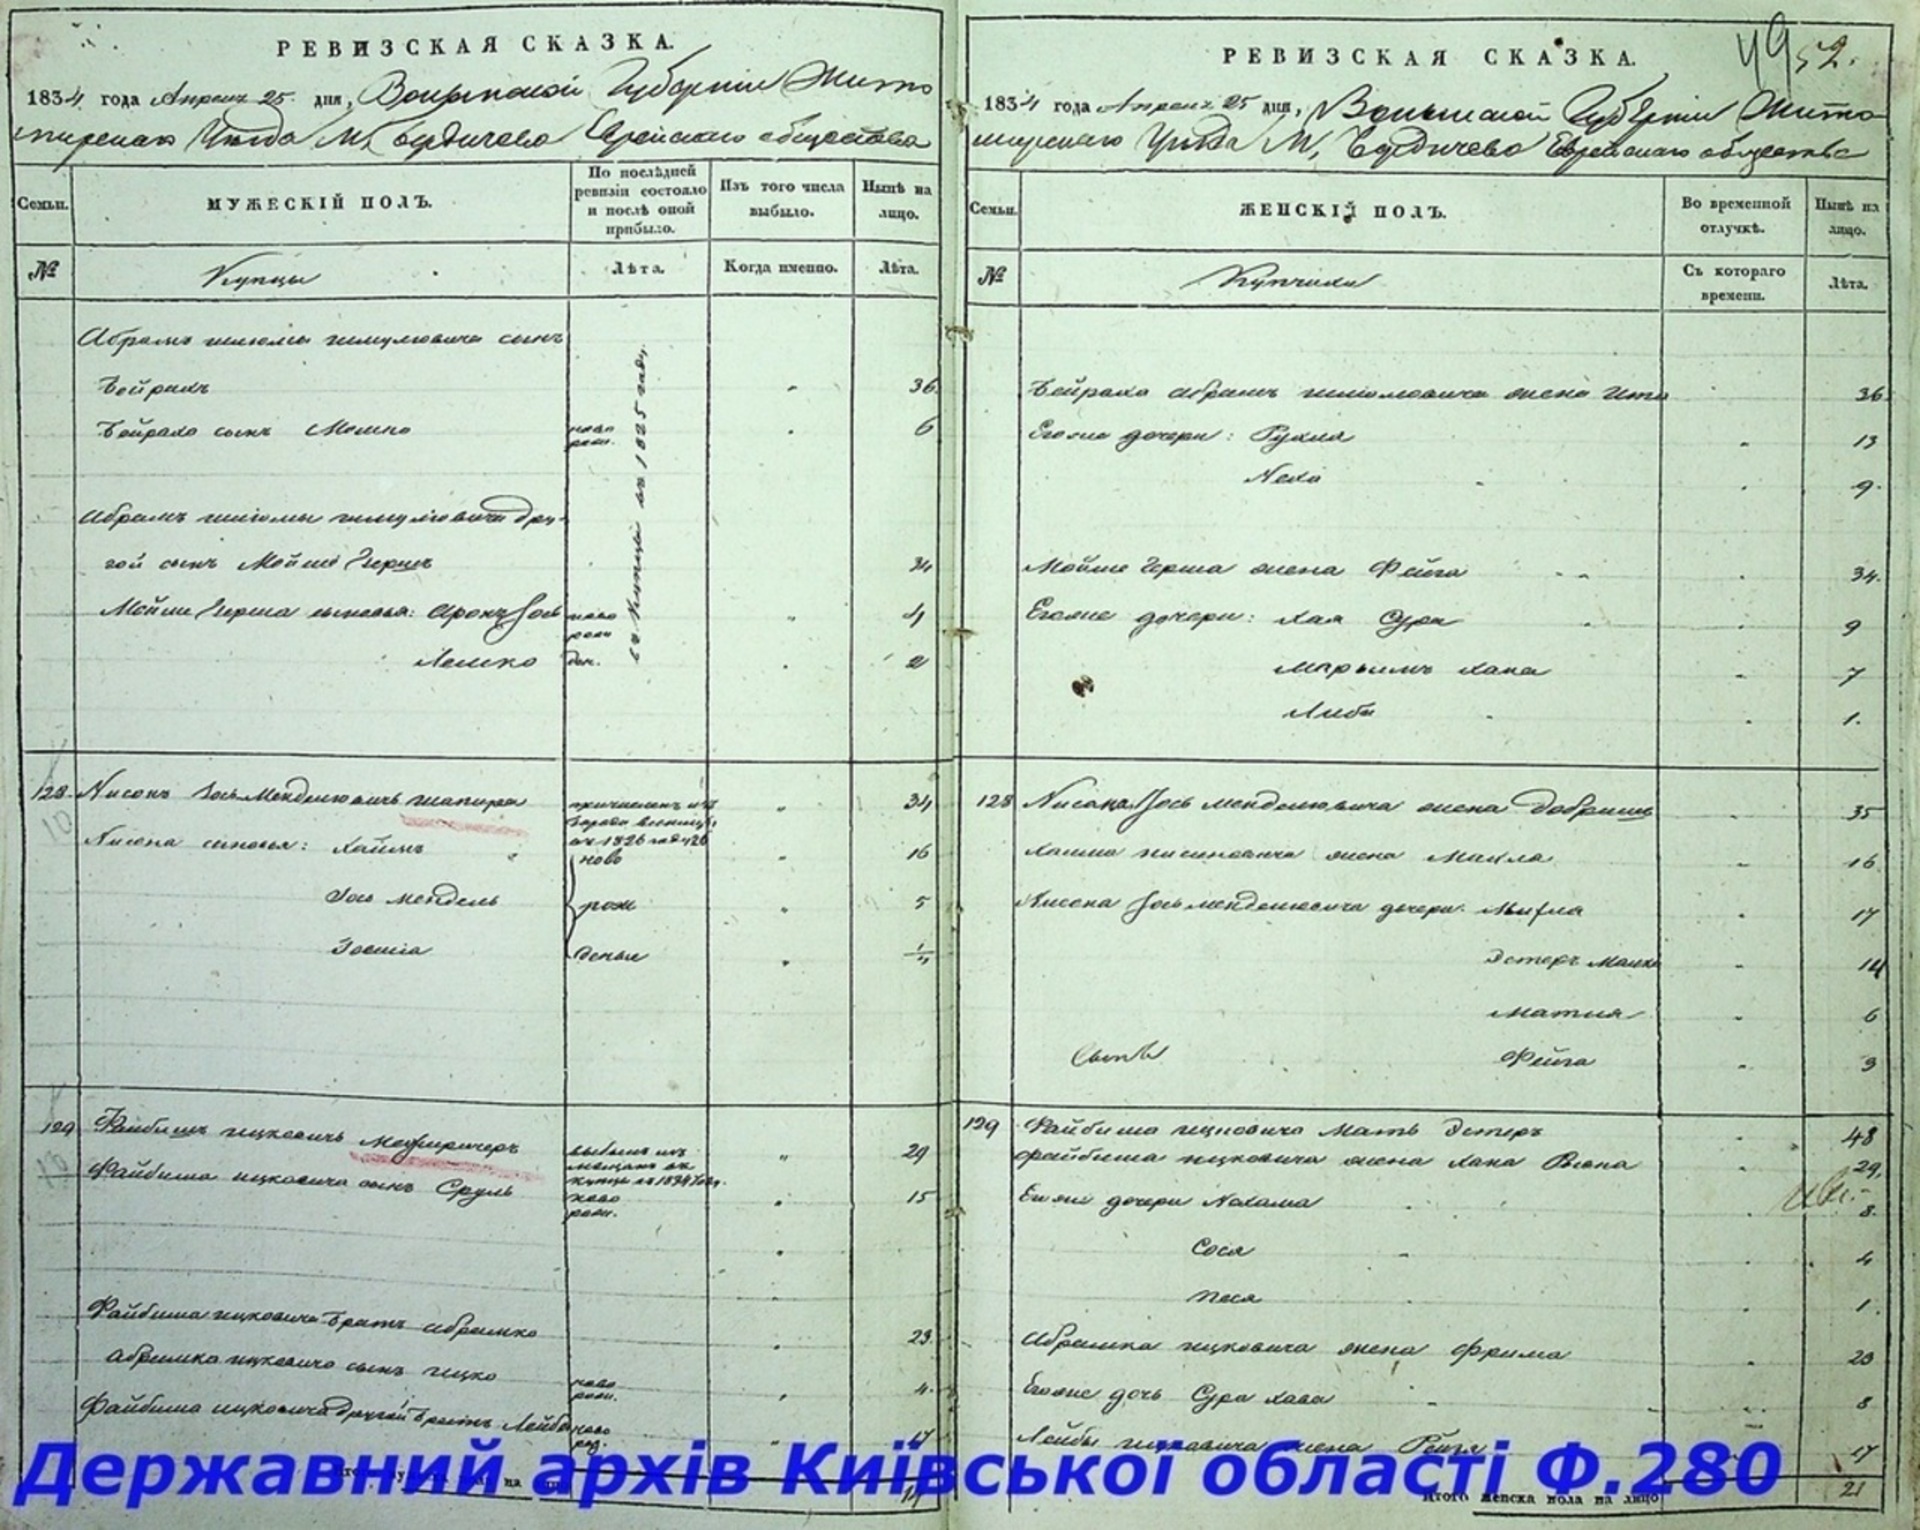 РЕВИЗСКАЯ СКАЗКА.
1834 года Апреля 25 дня, Волынской Губернии Жито
мирскаго Уѣзда М, Бердичева Еврейскаго общества
Семьи.
МУЖЕСКІЙ ПОЛЪ.
По послѣдней ревизіи состояло и послѣ оной прибыло.
Изъ того числа выбыло.
Нынѣ на лицо.
№
Купцы
Лѣта.
Когда именно.
Лѣта.
Абрамъ шлюмы шмулювича сынъ
Бейрахъ 36
Бейраха сынъ Мошко ново рож. 6
въ 1825 году
Абрамъ шлюмы шмулювича дру-
гой сынъ Мойше Гершъ 34
Мойше Герша сыновья: Аронъ Іось ново рож 4
Лешко ден. 2
128 Нисонъ Іось Менделювичъ шапира 34
въ 1826 году
Нисона сыновья: Хаимъ ново 16
Іось Мендель рож 5
денные
129 Файбишъ ицковичъ 29
выбылъ изъ мещанъ въ купцы
Файбиша ицковича сынъ Сруль ново рож. 15
Файбиша ицковича братъ абрамко 23
абрамка ицковича сынъ ицко ново рож. 4
Файбиша ицковича другой братъ Лейба ново род. 17
РЕВИЗСКАЯ СКАЗКА.
49 52.
1834 года Апреля 25 дня, Волынской Губерніи Жито
мирскаго Уѣзда М, Бердичева Еврейскаго общества
Семьи.
ЖЕНСКІЙ ПОЛЪ.
Во временной отлучкѣ.
Нынѣ на лицо.
№
Купчихи
Съ котораго времени.
Лѣта.
Бейраха абрамъ шлюмовича жена Ита 36
Егоже дочери: Рухля 13
Неха 9
Мойше Герша жена Фейга 34.
Егоже дочери: Хая Сура 9
Марьямъ Хана 7
Либа 1.
128 Нисона Іось менделювича жена Добришъ 35
Хаима нисоновича жена Махля 16
Нисона Іось менделювича дочери: 17
Эстеръ Малка 14
Матля 6
Фейга 3
129 Файбиша ицковича Мать Эстеръ 48
файбиша ицковича жена Хана 29,
Егоже дочери Нехама 8.
Сося 4
Песя 1.
Абрамка ицковича жена Фрима 23
Егоже дочь Сура Хава 8
Лейбы ицковича жена Рейзя 17
Итого женска пола на лицо 21
Державний архів Київської області Ф.280